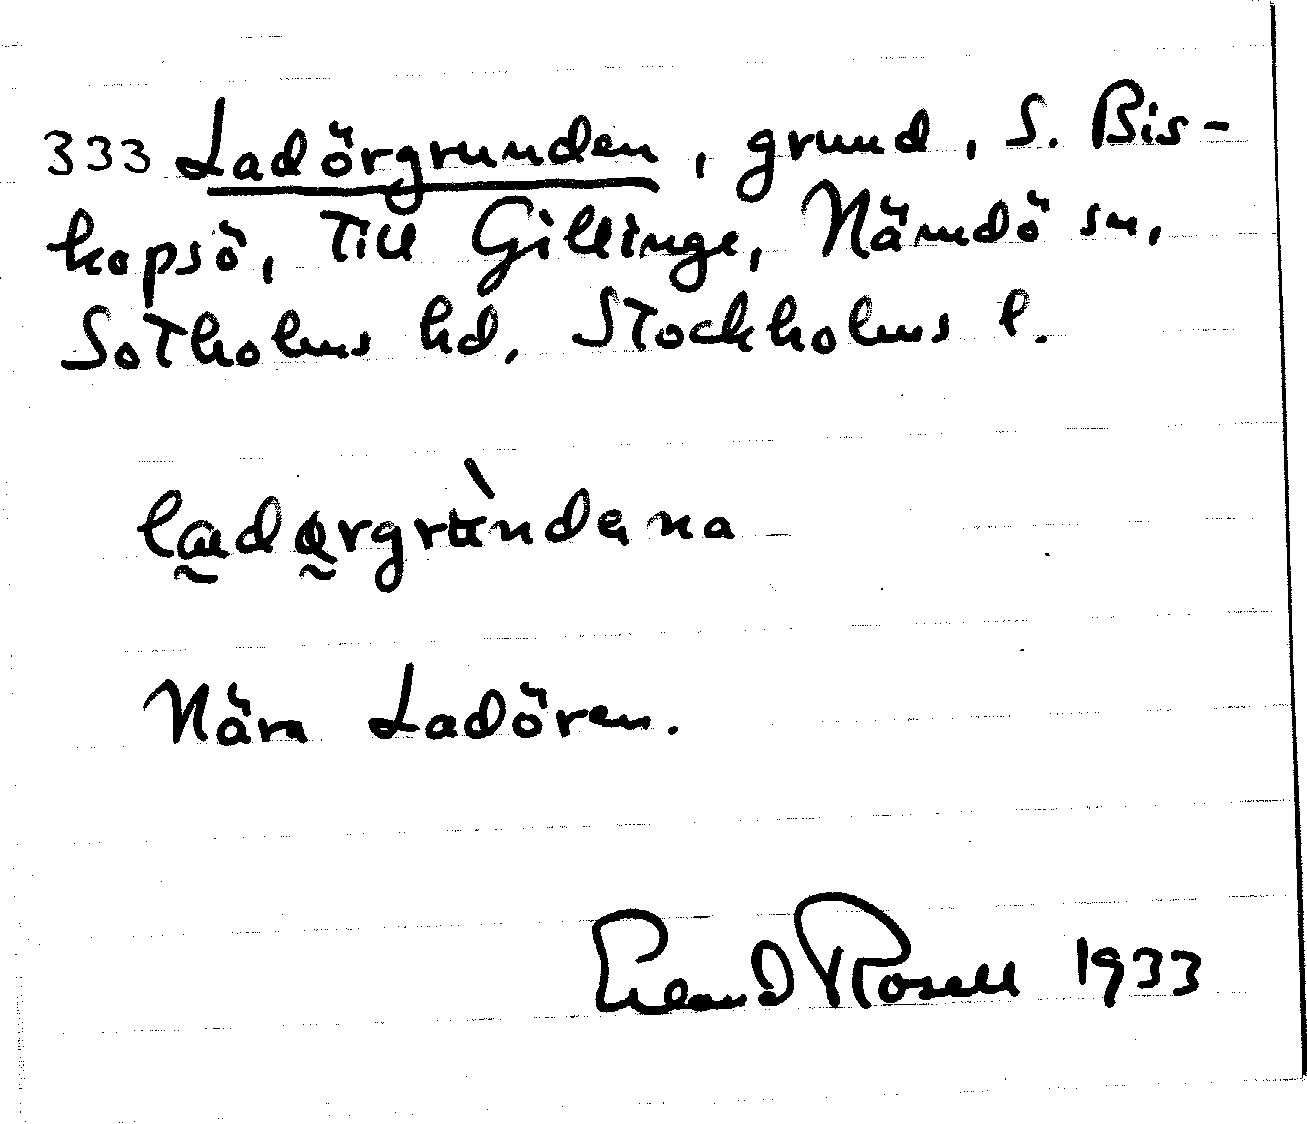 333 Ladörgrunden, grund, S. Bis-
kopsö, Till Gillinge, Nämdö sn,
Sotholms hd. Stockholms l.
Nära Ladören.
Erland Rosell 1933